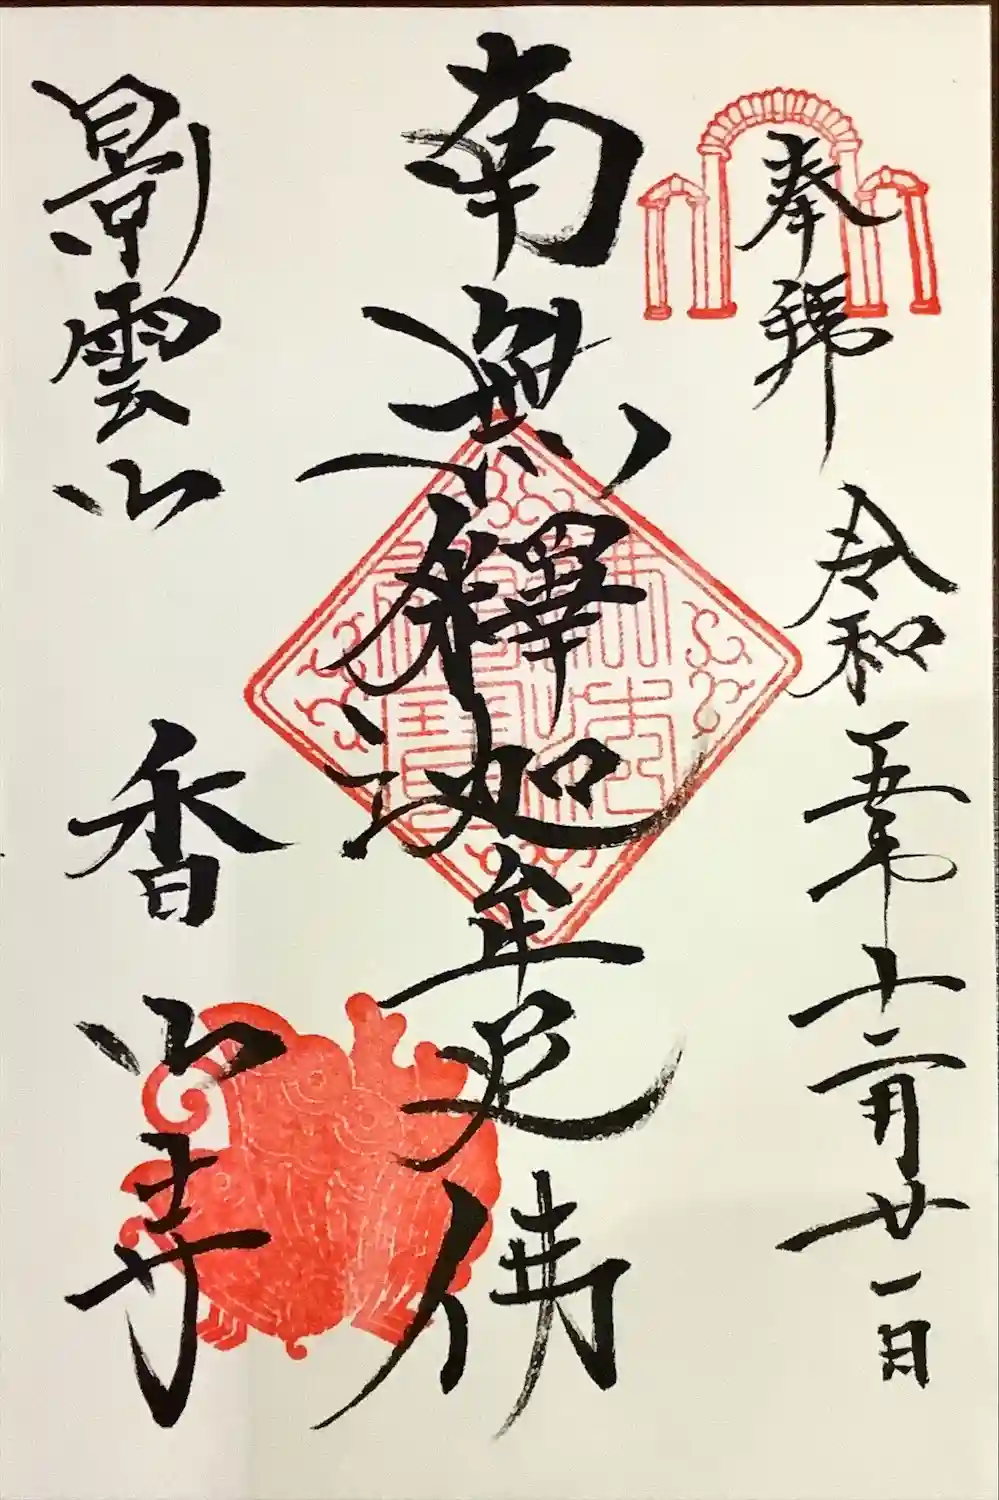 奉拜
令和五年十二月廿一日
南無釋迦牟尼佛
影雲山
香山寺
佛法僧寶